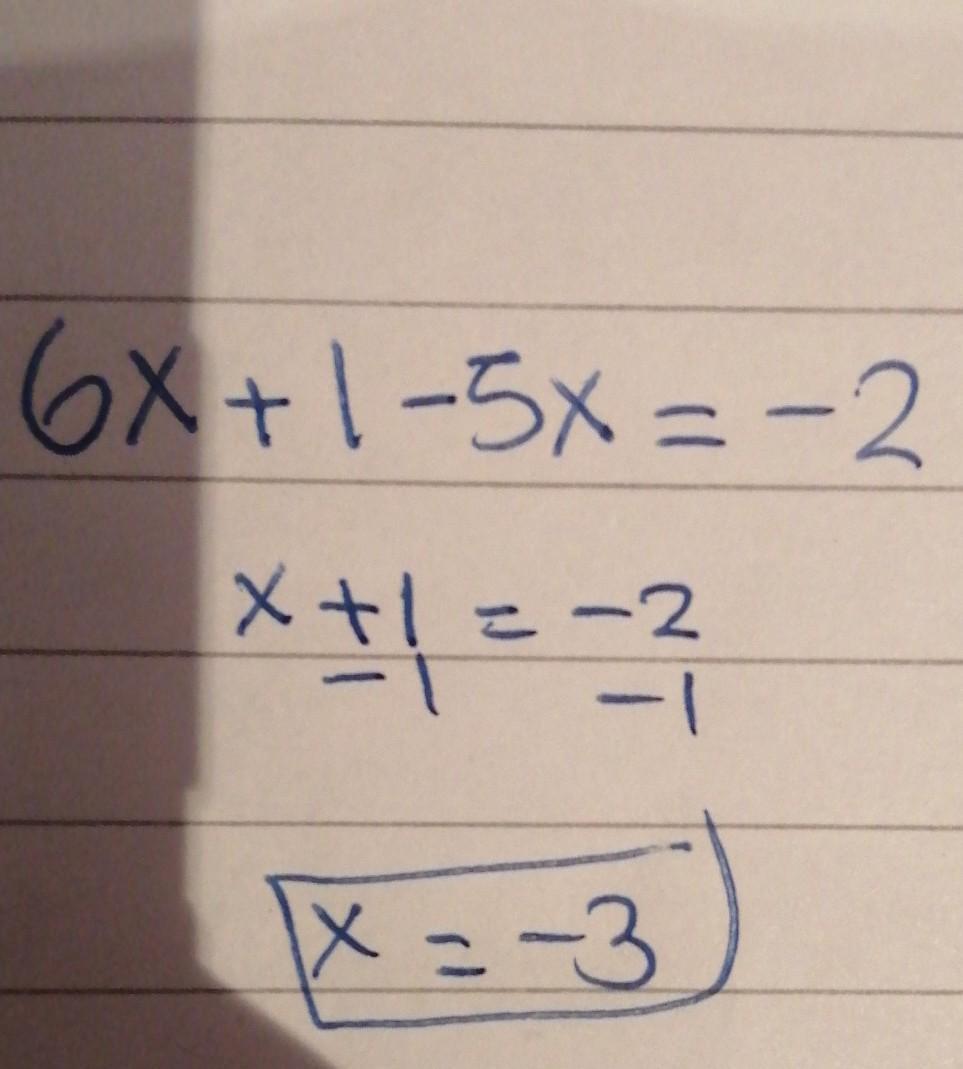 6x+1-5x=-2
x+1=-2
-1 -1
x=-3